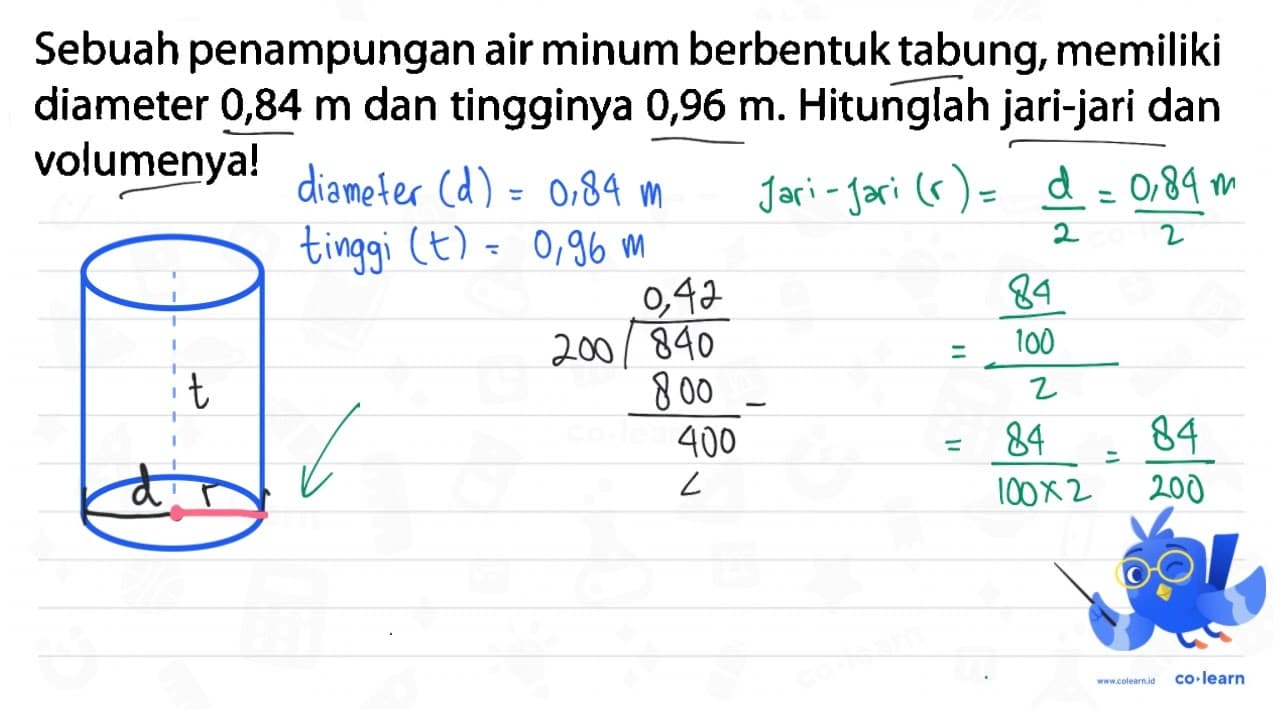 Sebuah penampungan air minum berbentuk tabung, memiliki
diameter 0,84 m dan tingginya 0,96 m. Hitunglah jari-jari dan
volumenya!
diameter (d) = 0,84 m
tinggi (t) = 0,96 m
Jari-Jari (r) = d/2 = 0,84 m/2
0,42
200 840
800 -
400
<
= 84/100/2
= 84/100x2 = 84/200
t
d r
www.colearn.id co·learn